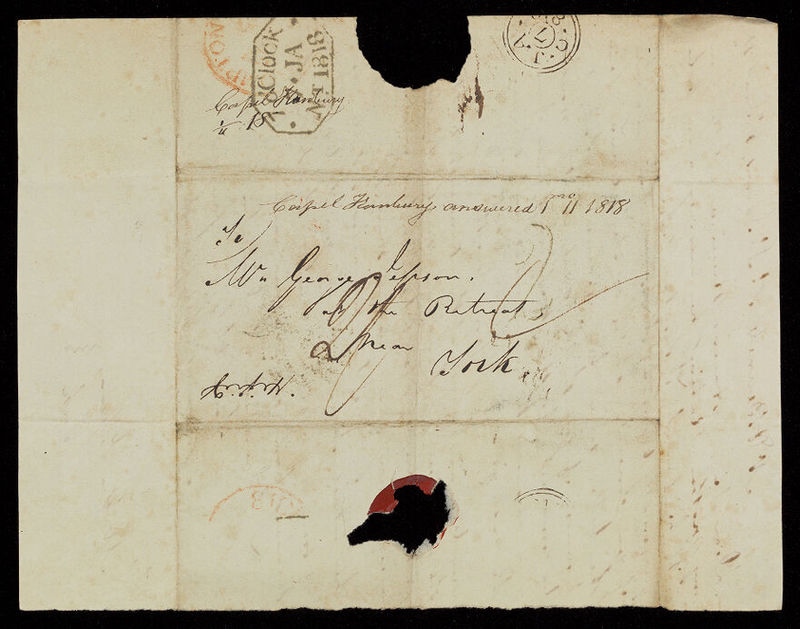 Clock
JA
NT 1818
Capel Hanbury
18
Capel Hanbury answered 1mo 11 1818
To
Mr George Jepson.
at the Retreat,
Near
York.